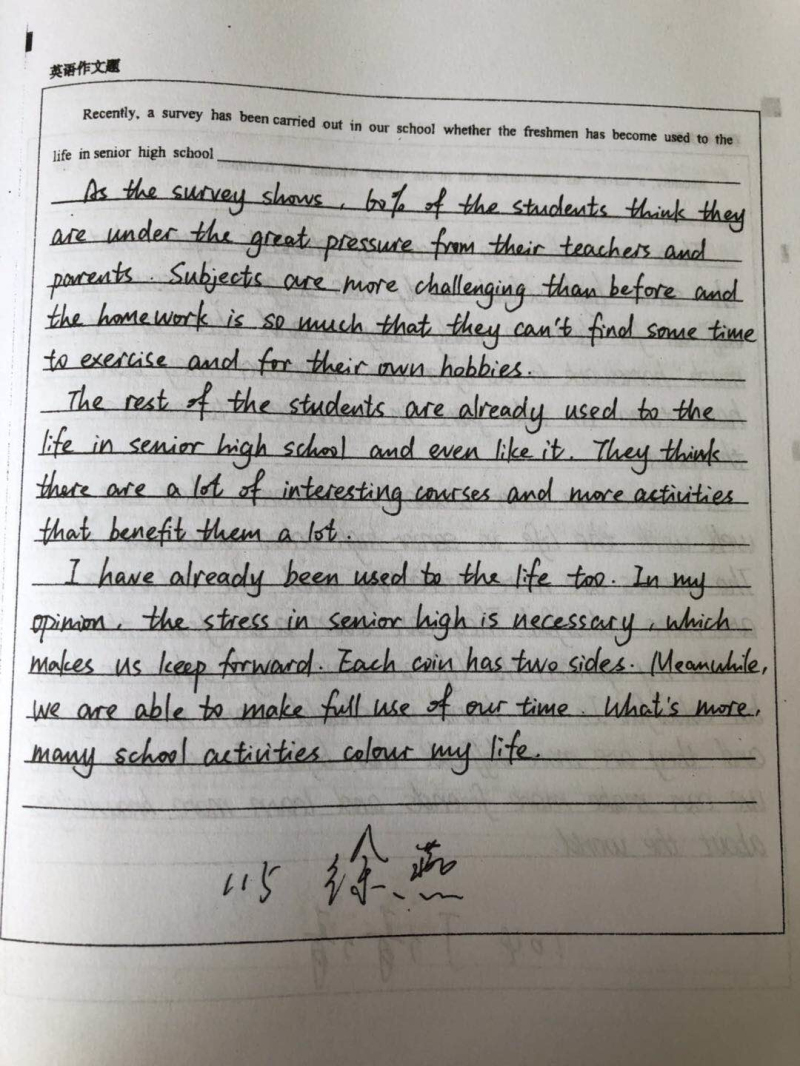 英语作文题
Recently, a survey has been carried out in our school whether the freshmen has become used to the
life in senior high school
As the survey shows, 60% of the students think they
are under the great pressure from their teachers and
parents. Subjects are more challenging than before and
the homework is so much that they can't find some time
to exercise and for their own hobbies.
The rest of the students are already used to the
life in senior high school and even like it. They think
there are a lot of interesting courses and more activities
that benefit them a lot.
I have already been used to the life too. In my
opinion, the stress in senior high is necessary, which
makes us keep forward. Each coin has two sides. Meanwhile,
we are able to make full use of our time. What's more,
many school activities colour my life.
115 徐燕